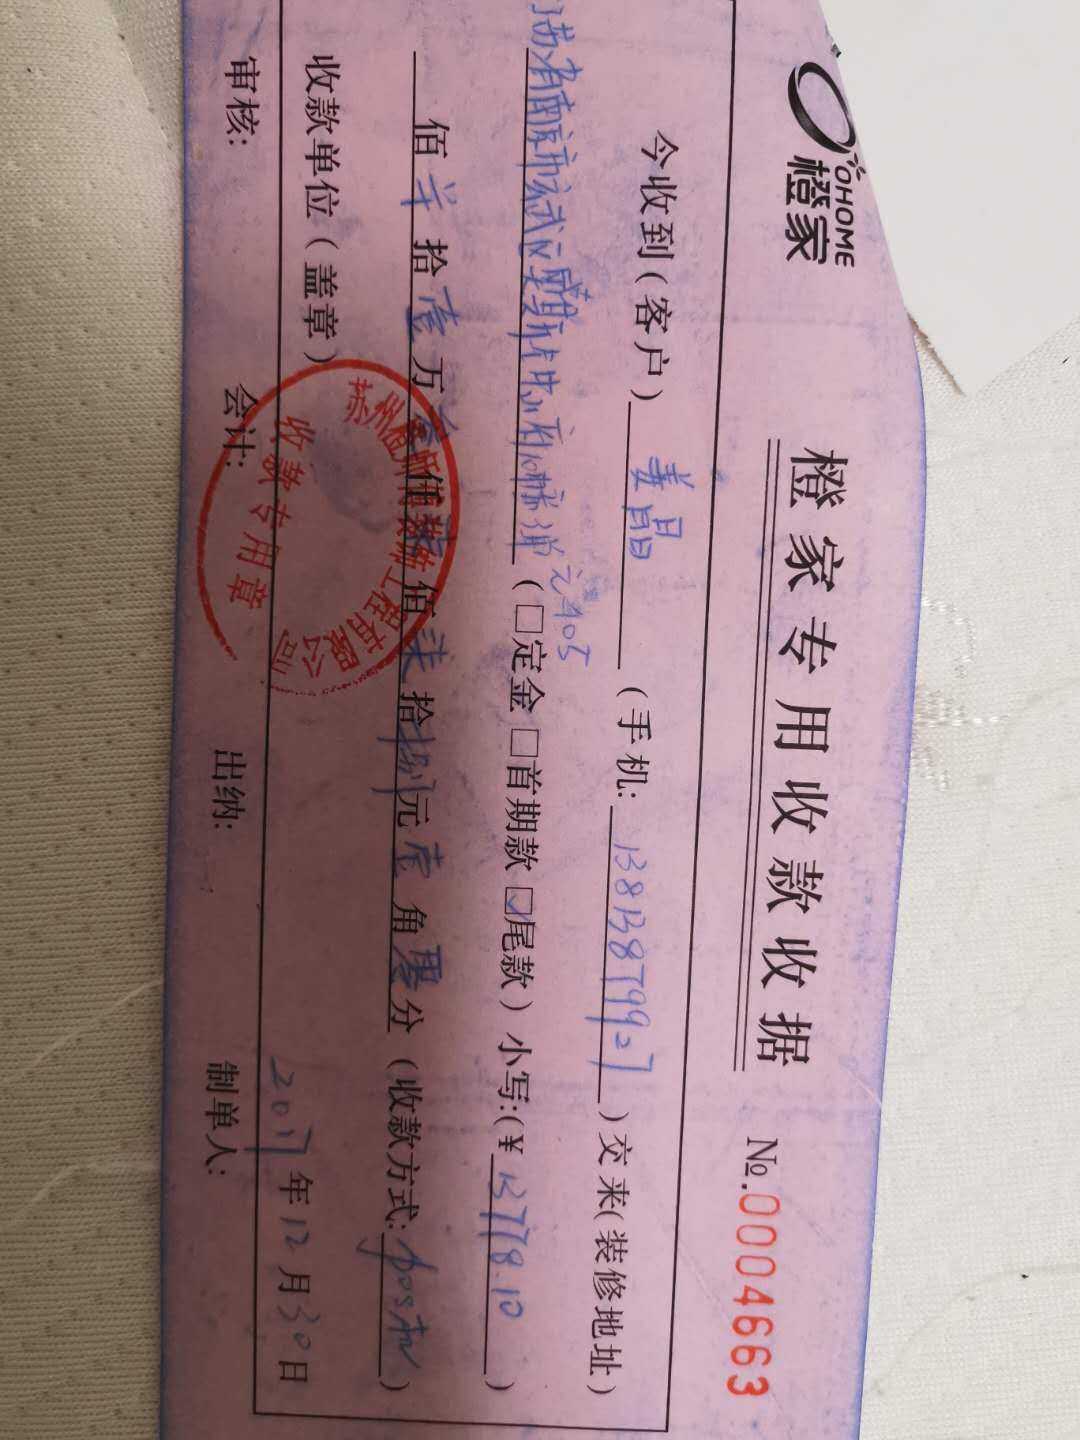 OHOME
橙家
橙家专用收款收据
№.0004663
今收到(客户) 姜晶 (手机: 13813859927 )交来(装修地址)
江苏省南京市玄武区
元405
(□定金 □首期款 ☑尾款) 小写:(¥ 13778.10 )
佰 拾壹万 仟柒佰柒拾捌元壹角零分 (收款方式: pos机 )
收款单位(盖章)
2017年12月30日
苏州 工程有限公司
收款专用章
审核: 会计: 出纳: 制单人: